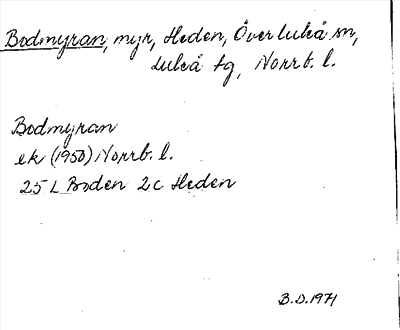 Bodmyran, myr, Heden, Överluleå sn,
Luleå tg, Norrb. l.
Bodmyran
ek (1950) Norrb. l.
25 L Boden 2c Heden
B.D. 1971